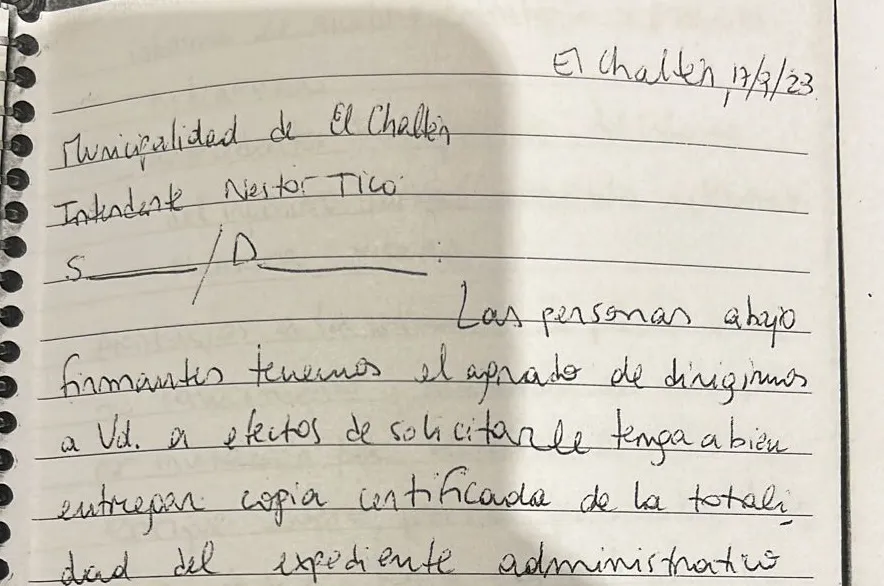 El Chaltén, 17/7/23
Municipalidad de El Chaltén
Intendente Nestor Tico
S______/D______:
Las personas abajo
firmantes tenemos el agrado de dirigirnos
a Vd. a efectos de solicitarle tenga a bien
entregar copia certificada de la totali
dad del expediente administrativo